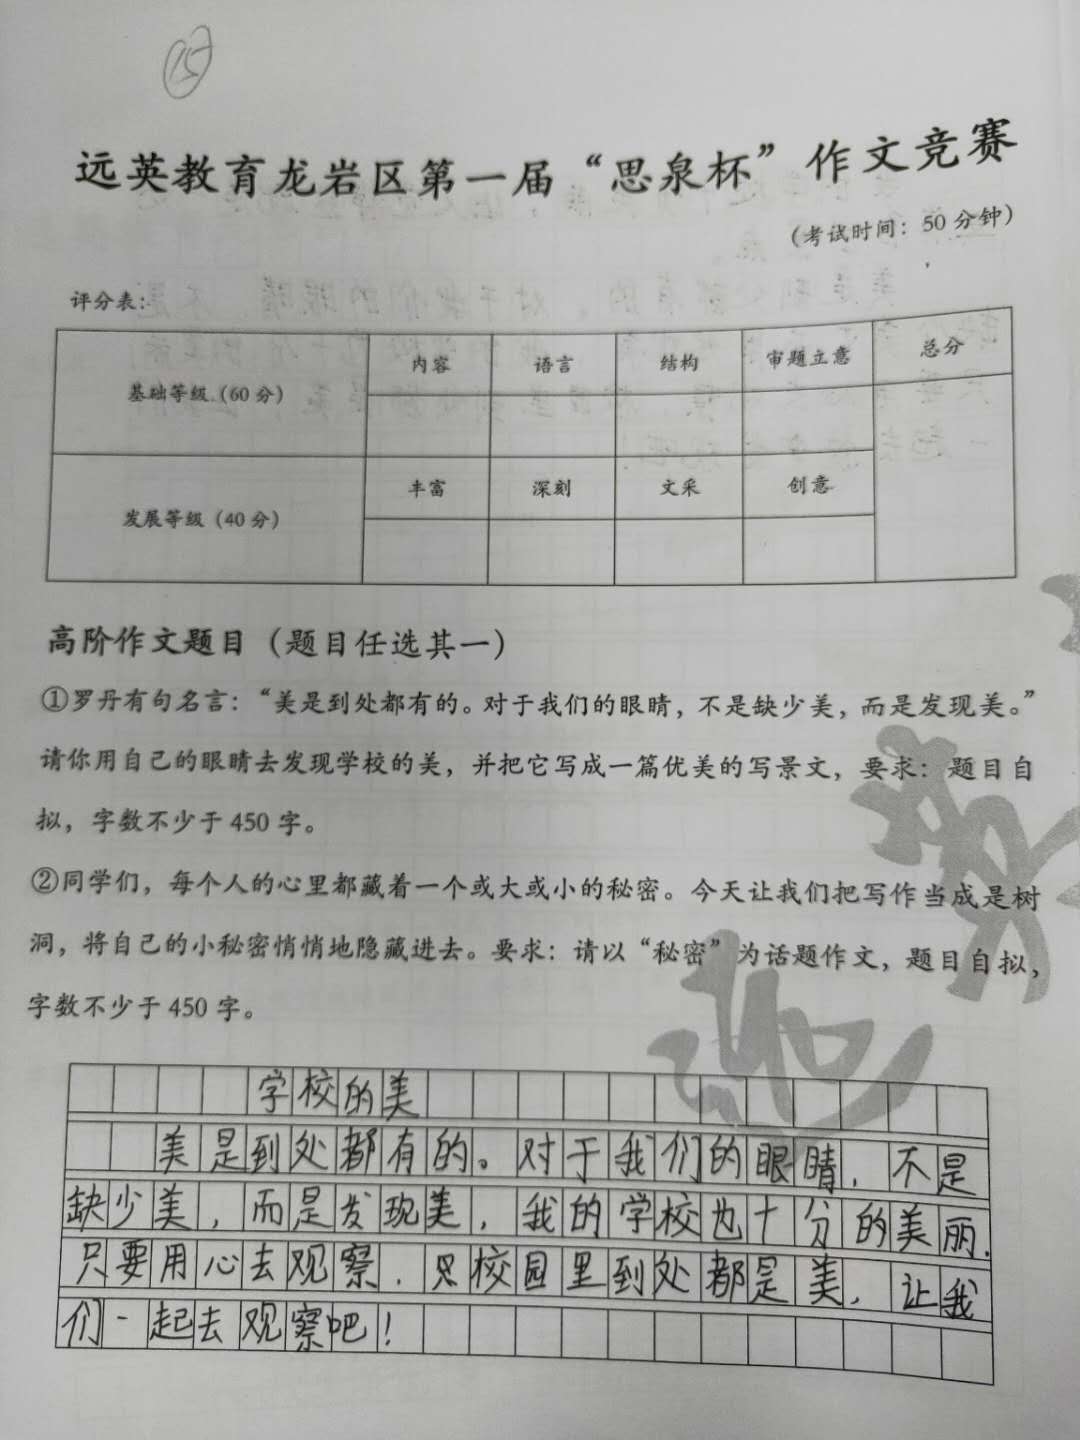 15
远英教育龙岩区第一届“思泉杯”作文竞赛
（考试时间：50分钟）
评分表：
基础等级（60分） 内容 语言 结构 审题立意 总分
发展等级（40分） 丰富 深刻 文采 创意
高阶作文题目（题目任选其一）
①罗丹有句名言：“美是到处都有的。对于我们的眼睛，不是缺少美，而是发现美。”
请你用自己的眼睛去发现学校的美，并把它写成一篇优美的写景文，要求：题目自
拟，字数不少于450字。
②同学们，每个人的心里都藏着一个或大或小的秘密。今天让我们把写作当成是树
洞，将自己的小秘密悄悄地隐藏进去。要求：请以“秘密”为话题作文，题目自拟，
字数不少于450字。
学校的美
美是到处都有的。对于我们的眼睛，不是
缺少美，而是发现美，我的学校也十分的美丽.
只要用心去观察.校园里到处都是美，让我
们一起去观察吧！